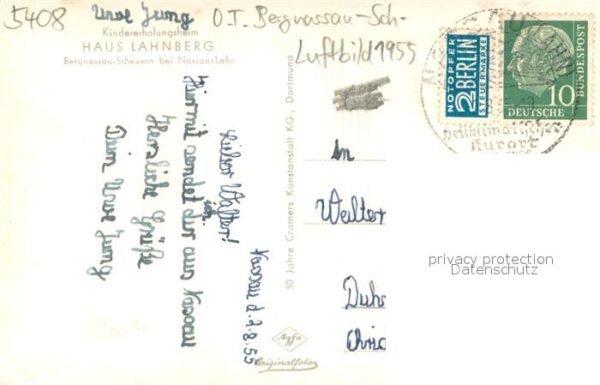 5408
Uwe Jung
O.T. Bergnassau-Sch-
Luftbild 1955
Kindererholungsheim
HAUS LAHNBERG
Bergnassau-Scheuern bei Nassau-Lahn
Nassau d. 7.8.55
Lieber Walter!
ich
Hiermit sendet dir aus Nassau
Herzliche Grüße
Dein Uwe Jung
50 Jahre Cramers Kunstanstalt KG., Dortmund
Agfa
Originalfoto
NOTOPFER
2 BERLIN
STEUERMARKE
DEUTSCHE
BUNDESPOST
10
heilklimatischer
Kurort
An
Walter
privacy protection
Datenschutz